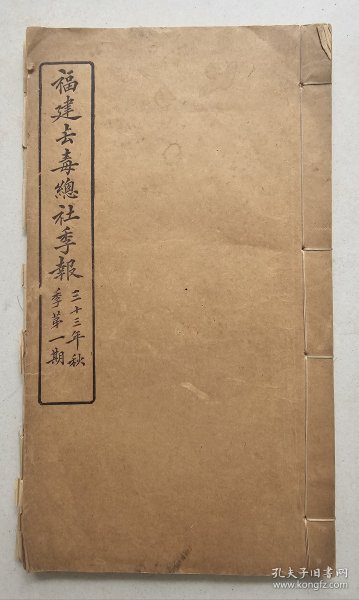 福建去毒總社季報
三十三年秋
季第一期
孔夫子旧书网
www.kongfz.com